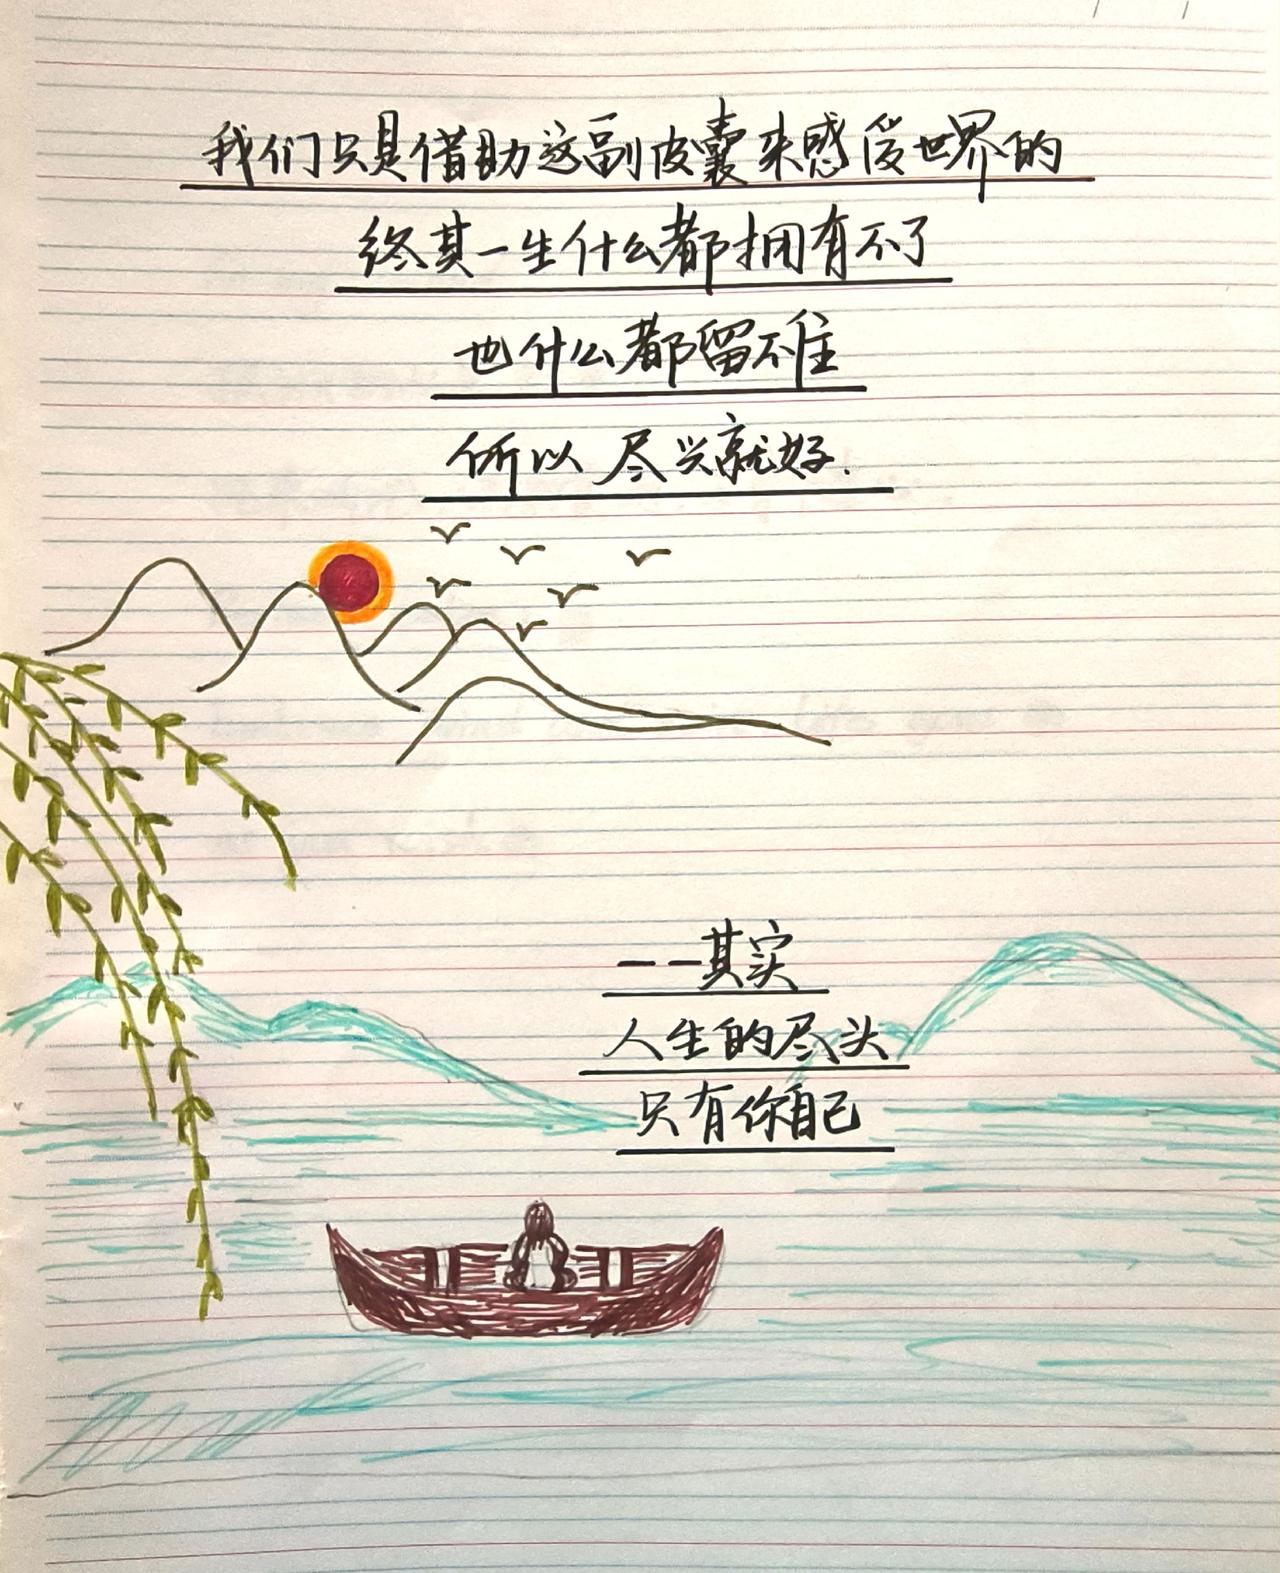 我们只是借助这副皮囊来感受世界的
终其一生什么都拥有不了
也什么都留不住
所以 尽兴就好.
——其实
人生的尽头
只有你自己